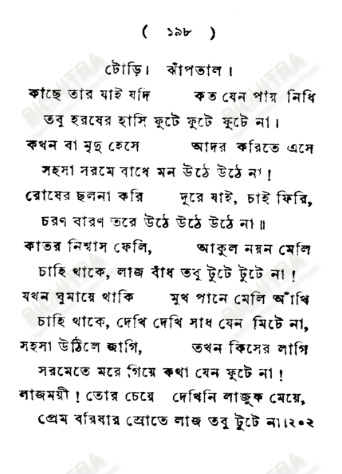 ( ১৯৮ )
টোড়ি। ঝাঁপতাল।
কাছে তার যাই যদি কত যেন পায় নিধি
তবু হরষের হাসি ফুটে ফুটে ফুটে না।
কখন বা মৃদু হেসে আদর করিতে এসে
সহসা সরমে বাধে মন উঠে উঠে না!
রোষের ছলনা করি দূরে যাই, চাই ফিরি,
চরণ বারণ তরে উঠে উঠে উঠে না॥
কাতর নিশ্বাস ফেলি, আকুল নয়ন মেলি
চাহি থাকে, লাজ বাঁধ তবু টুটে টুটে না!
যখন ঘুমায়ে থাকি মুখ পানে মেলি আঁখি
চাহি থাকে, দেখি দেখি সাধ যেন মিটে না,
সহসা উঠিলে জাগি, তখন কিসের লাগি
সরমেতে মরে গিয়ে কথা যেন ফুটে না!
লাজময়ী! তোর চেয়ে দেখিনি লাজুক মেয়ে,
প্রেম বরিষার স্রোতে লাজ তবু টুটে না॥২০২